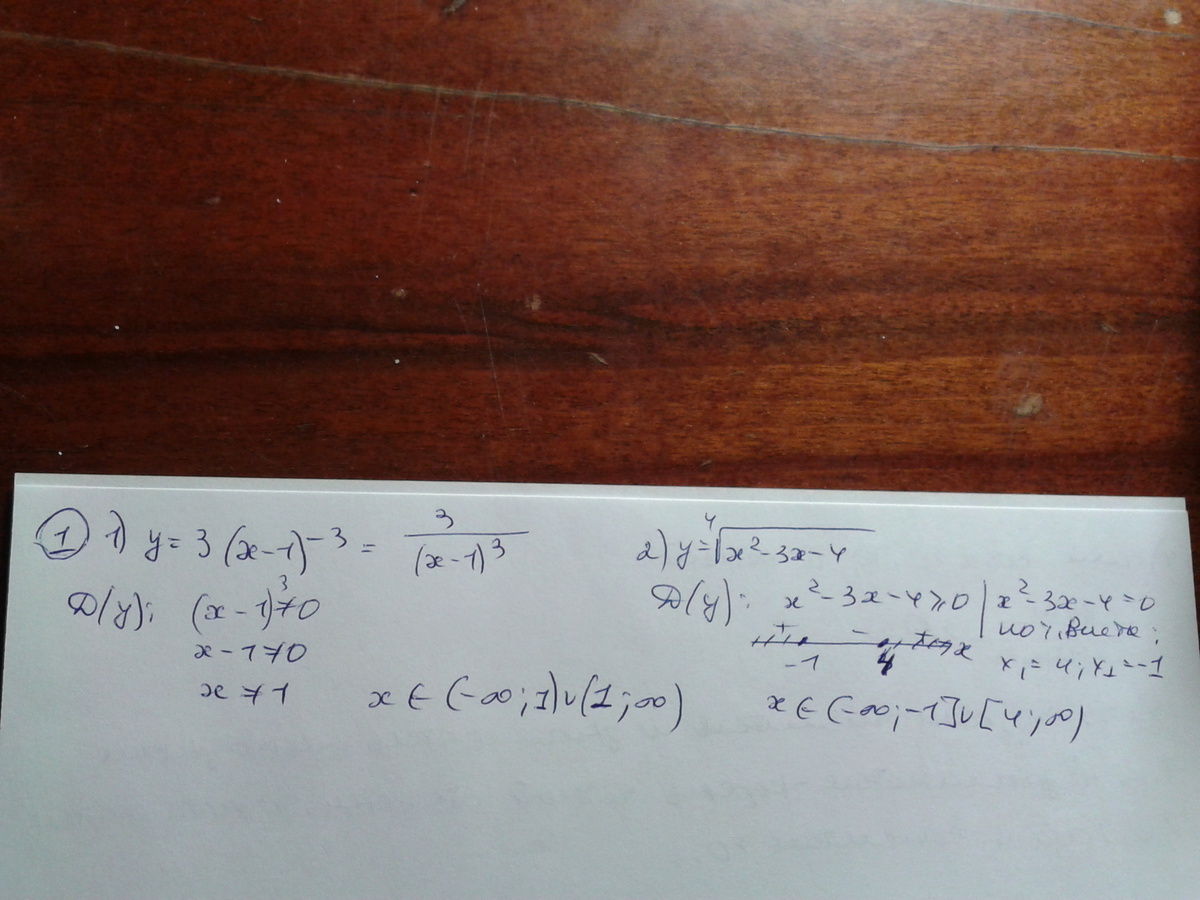 ① 1) y = 3 (x-1)^{-3} = \frac{3}{(x-1)^3}
D(y): (x-1)^3 ≠ 0
x-1 ≠ 0
x ≠ 1
x ∈ (-∞; 1) ∪ (1; ∞)
2) y = \sqrt[4]{x^2-3x-4}
D(y): x^2-3x-4 ≥ 0 | x^2-3x-4=0
по т. Виета:
x_1 = 4; x_2 = -1
+ - + x
-1 4
x ∈ (-∞; -1] ∪ [4; ∞)